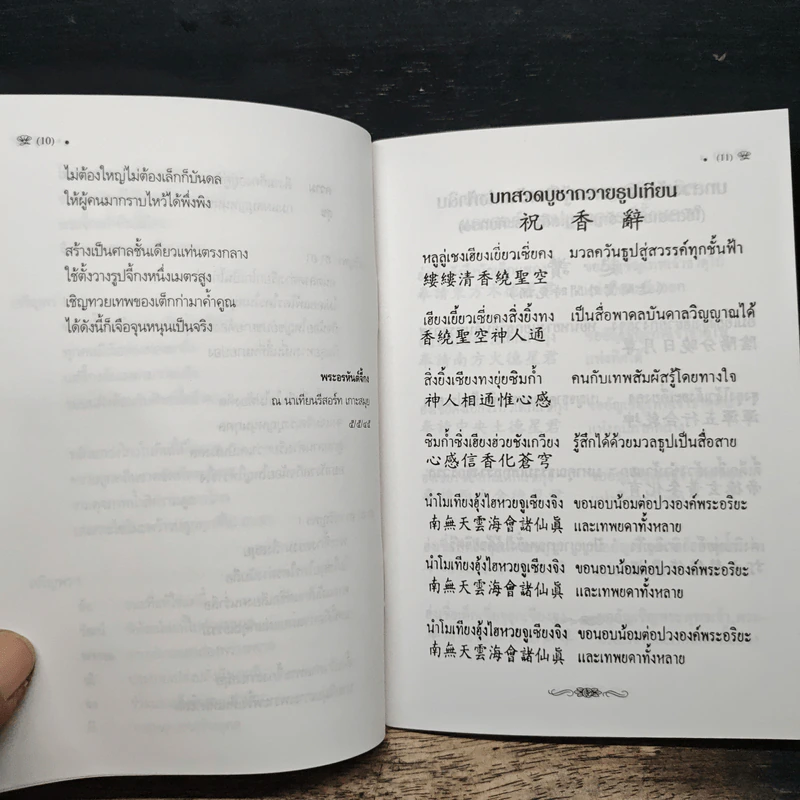 (10)
ไม่ต้องใหญ่ไม่ต้องเล็กก็บันดล
ให้ผู้คนมากราบไหว้ได้พึ่งพิง
สร้างเป็นศาลชั้นเดียวแท่นตรงกลาง
ใช้ตั้งวางรูปจี้กงหนึ่งเมตรสูง
เชิญทวยเทพของเต็กก่ามาค้ำคูณ
ได้ดังนี้ก็เจือจุนหนุนเป็นจริง
พระอรหันต์จี้กง
ณ นาเทียนรีสอร์ท เกาะสมุย
๕/๕/๔๕
(11)
บทสวดบูชาถวายธูปเทียน
祝 香 辭
หลูลู่เชงเฮียงเยี่ยวเซี่ยคง มวลควันธูปสู่สวรรค์ทุกชั้นฟ้า
縷縷清香繞聖空
เฮียงเยี้ยวเซี่ยคงสิ่งยิ้งทง เป็นสื่อพาดลบันดาลวิญญาณได้
香繞聖空神人通
สิ่งยิ้งเซียงทงยุ่ยซิมก้ำ คนกับเทพสัมผัสรู้โดยทางใจ
神人相通惟心感
ซิมก้ำซิ่งเฮียงฮ่วยชังเกวียง รู้สึกได้ด้วยมวลธูปเป็นสื่อสาย
心感信香化蒼穹
นำโมเทียงฮุ้งไฮหวยจูเซียงจิง ขอนอบน้อมต่อปวงองค์พระอริยะ
南無天雲海會諸仙眞 และเทพยดาทั้งหลาย
นำโมเทียงฮุ้งไฮหวยจูเซียงจิง ขอนอบน้อมต่อปวงองค์พระอริยะ
南無天雲海會諸仙眞 และเทพยดาทั้งหลาย
นำโมเทียงฮุ้งไฮหวยจูเซียงจิง ขอนอบน้อมต่อปวงองค์พระอริยะ
南無天雲海會諸仙眞 และเทพยดาทั้งหลาย